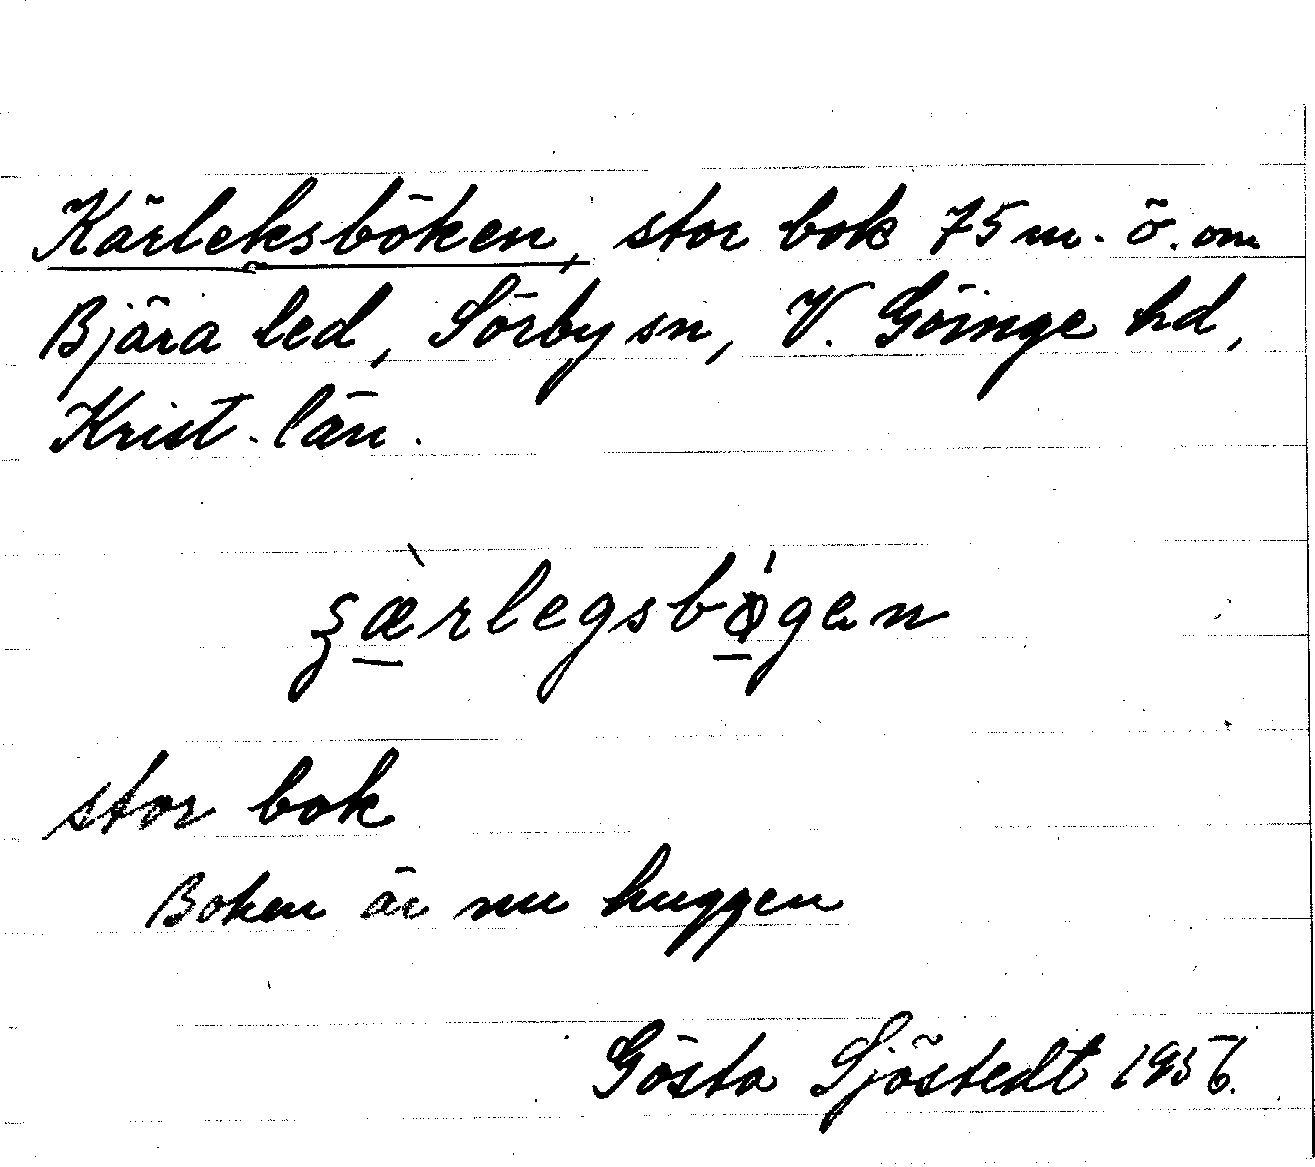 Kärleksböken, stor bok 75 m. ö. om
Bjära led, Sörby sn, V. Göinge hd,
Krist. län.
stor bok
Boken är nu huggen
Gösta Sjöstedt 1956.